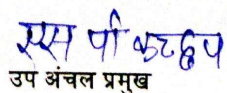 एस पी कच्छप
उप अंचल प्रमुख